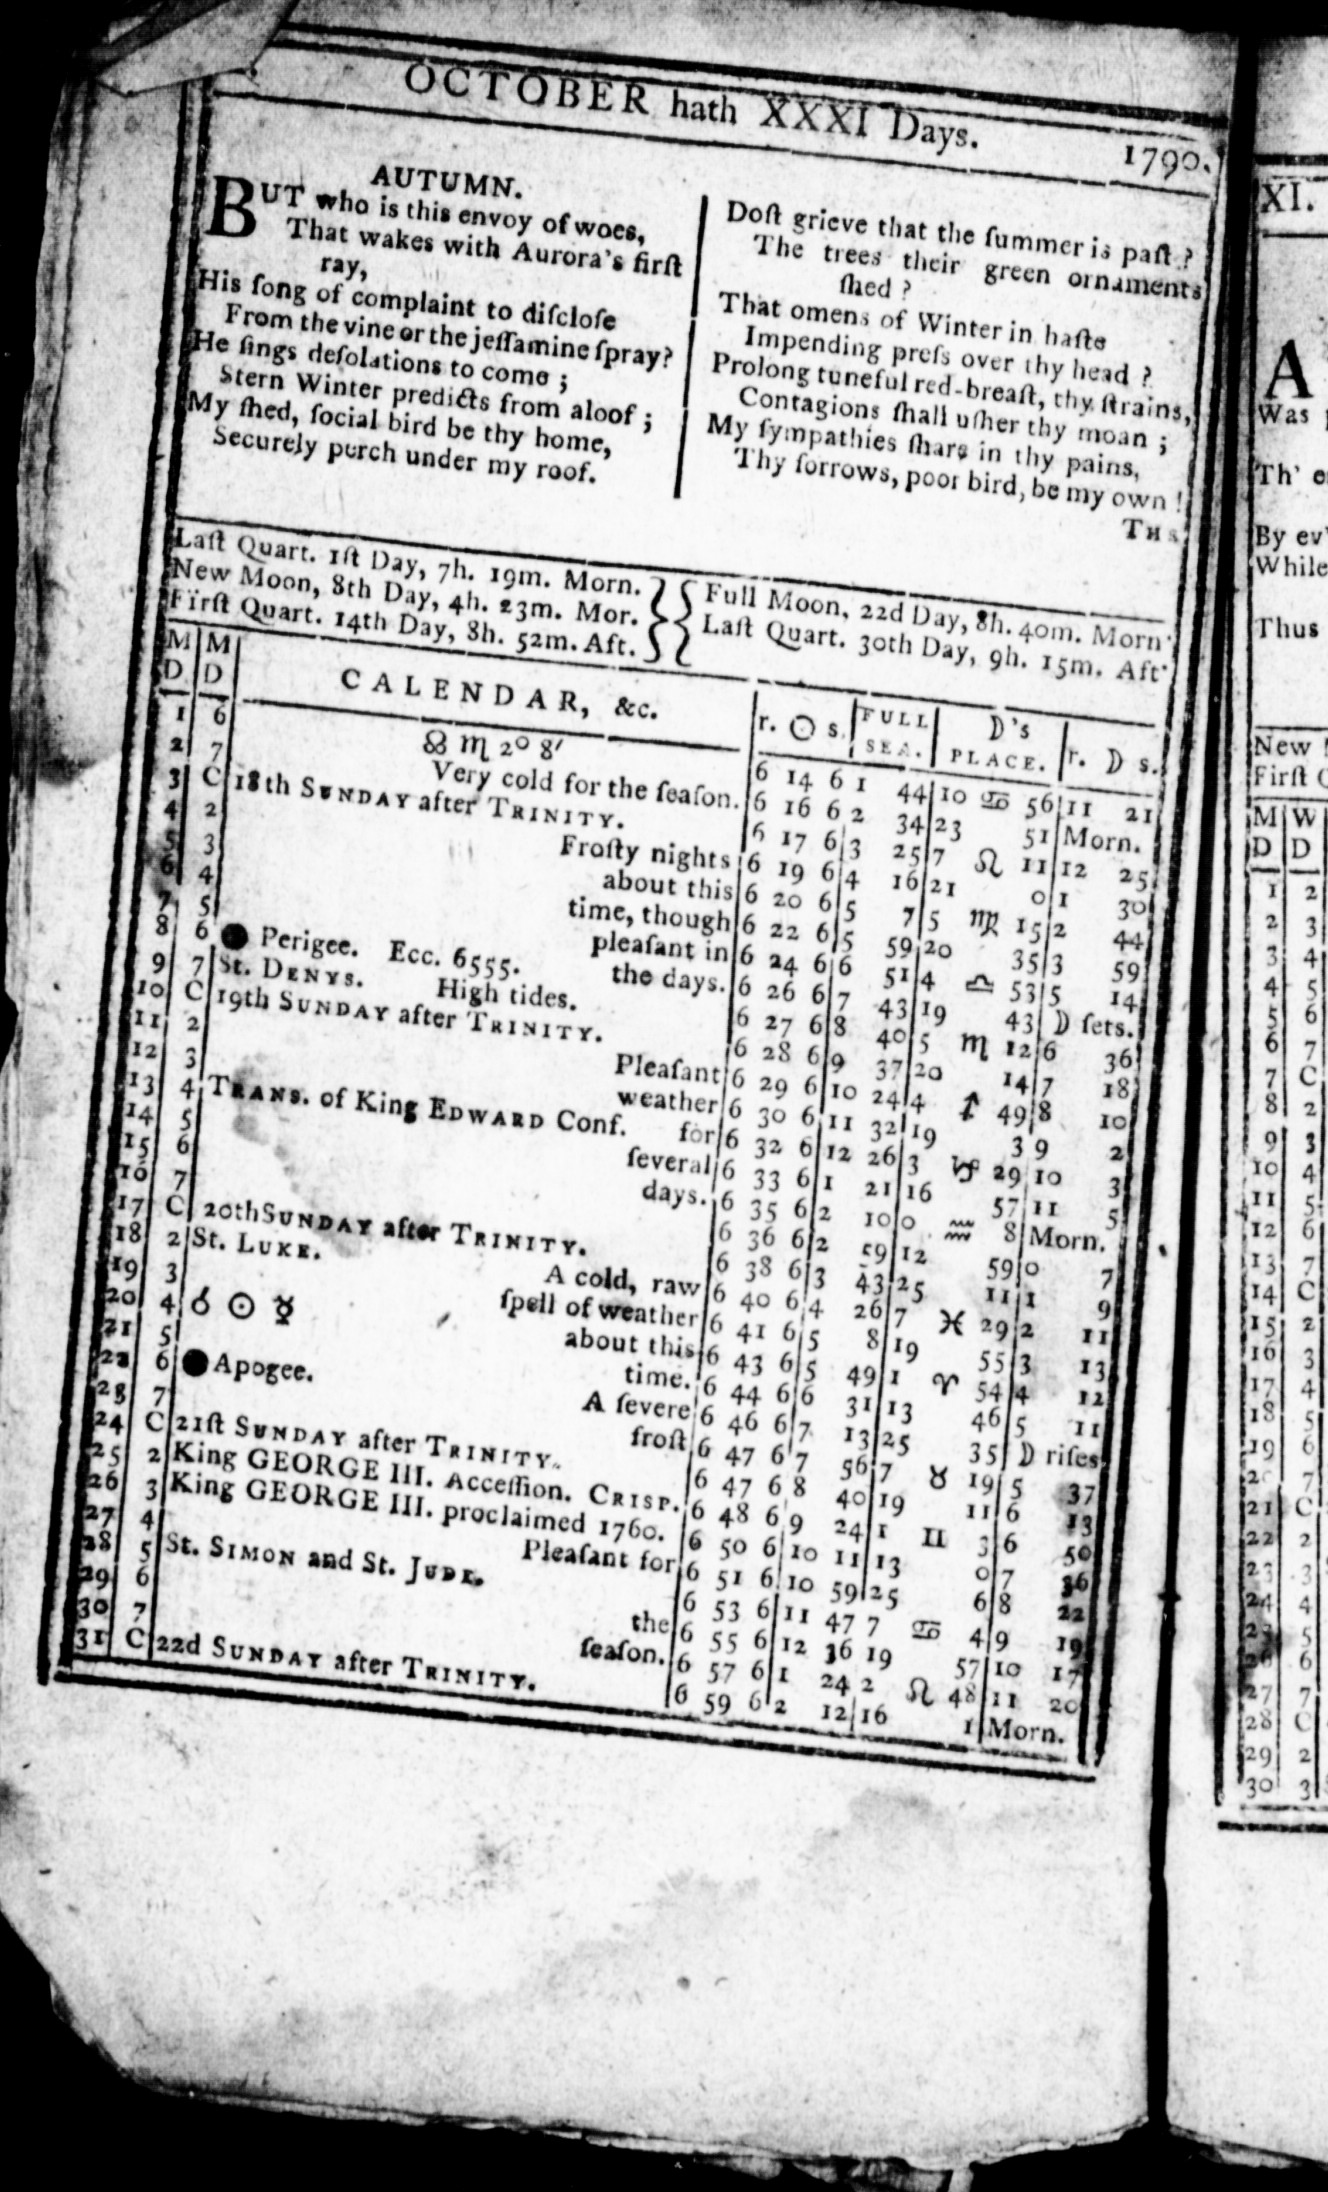 OCTOBER hath XXXI Days.
1790.
AUTUMN.
BUT who is this envoy of woes,
That wakes with Aurora's firſt
ray,
His ſong of complaint to diſcloſe
From the vine or the jeſſamine ſpray?
He ſings deſolations to come ;
Stern Winter predicts from aloof ;
My ſhed, ſocial bird be thy home,
Securely perch under my roof.
Doſt grieve that the ſummer is paſt ?
The trees their green ornaments
ſhed ?
That omens of Winter in haſte
Impending preſs over thy head ?
Prolong tuneful red-breaſt, thy ſtrains,
Contagions ſhall uſher thy moan ;
My ſympathies ſhare in thy pains,
Thy ſorrows, poor bird, be my own !
Laſt Quart. 1ſt Day, 7h. 19m. Morn.
New Moon, 8th Day, 4h. 23m. Mor.
Firſt Quart. 14th Day, 8h. 52m. Aft.
Full Moon, 22d Day, 8h. 40m. Morn
Laſt Quart. 30th Day, 9h. 15m. Aft
M D | M D | CALENDAR, &c. | r. ☉ s. | FULL SEA. | ☽'s PLACE. | r. ☽ s.
1 6 ☊ ♏ 2° 8′ 6 14 6 1 44 10 ♋ 56 11 21
2 7 Very cold for the ſeaſon. 6 16 6 2 34 23 51 Morn.
3 C 18th SUNDAY after TRINITY. 6 17 6 3 25 7 ♌ 11 12 25
4 2 Froſty nights 6 19 6 4 16 21 0 1 30
5 3 about this 6 20 6 5 7 5 ♍ 15 2 44
6 4 time, though 6 22 6 5 59 20 35 3 59
7 5 pleaſant in 6 24 6 6 51 4 ♎ 53 5 14
8 6 ● Perigee. Ecc. 6555. the days. 6 26 6 7 43 19 43 ☽ ſets.
9 7 St. DENYS. High tides. 6 27 6 8 40 5 ♏ 12 6 36
10 C 19th SUNDAY after TRINITY. 6 28 6 9 37 20 14 7 18
11 2 Pleaſant 6 29 6 10 24 4 ♐ 49 8 10
12 3 weather 6 30 6 11 32 19 3 9 2
13 4 TRANS. of King EDWARD Conf. for 6 32 6 12 26 3 ♑ 29 10 3
14 5 ſeveral 6 33 6 1 21 16 57 11 5
15 6 days. 6 35 6 2 10 0 ♒ 8 Morn.
16 7 6 36 6 2 59 12 59 0 7
17 C 20th SUNDAY after TRINITY. 6 38 6 3 43 25 11 1 9
18 2 St. LUKE. A cold, raw 6 40 6 4 26 7 ♓ 29 2 11
19 3 ſpell of weather 6 41 6 5 8 19 55 3 13
20 4 ☌ ☉ ☿ about this 6 43 6 5 49 1 ♈ 54 4 12
21 5 time. 6 44 6 6 31 13 46 5 11
22 6 ● Apogee. A ſevere 6 46 6 7 13 25 35 ☽ riſes
23 7 froſt 6 47 6 7 56 7 ♉ 19 5 37
24 C 21ſt SUNDAY after TRINITY. 6 47 6 8 40 19 11 6 13
25 2 King GEORGE III. Acceſſion. CRISP. 6 48 6 9 24 1 ♊ 3 6 50
26 3 King GEORGE III. proclaimed 1760. 6 50 6 10 11 13 0 7 36
27 4 Pleaſant for 6 51 6 10 59 25 6 8 22
28 5 St. SIMON and St. JUDE. 6 53 6 11 47 7 ♋ 4 9 19
29 6 the 6 55 6 12 36 19 57 10 17
30 7 ſeaſon. 6 57 6 1 24 2 ♌ 48 11 20
31 C 22d SUNDAY after TRINITY. 6 59 6 2 12 16 1 Morn.
XI.
A
Was
Th'
By ev'
While
Thus
New
Firſt
M D | W D
1 2
2 3
3 4
4 5
5 6
6 7
7 C
8 2
9 3
10 4
11 5
12 6
13 7
14 C
15 2
16 3
17 4
18 5
19 6
20 7
21 C
22 2
23 3
24 4
25 5
26 6
27 7
28 C
29 2
30 3